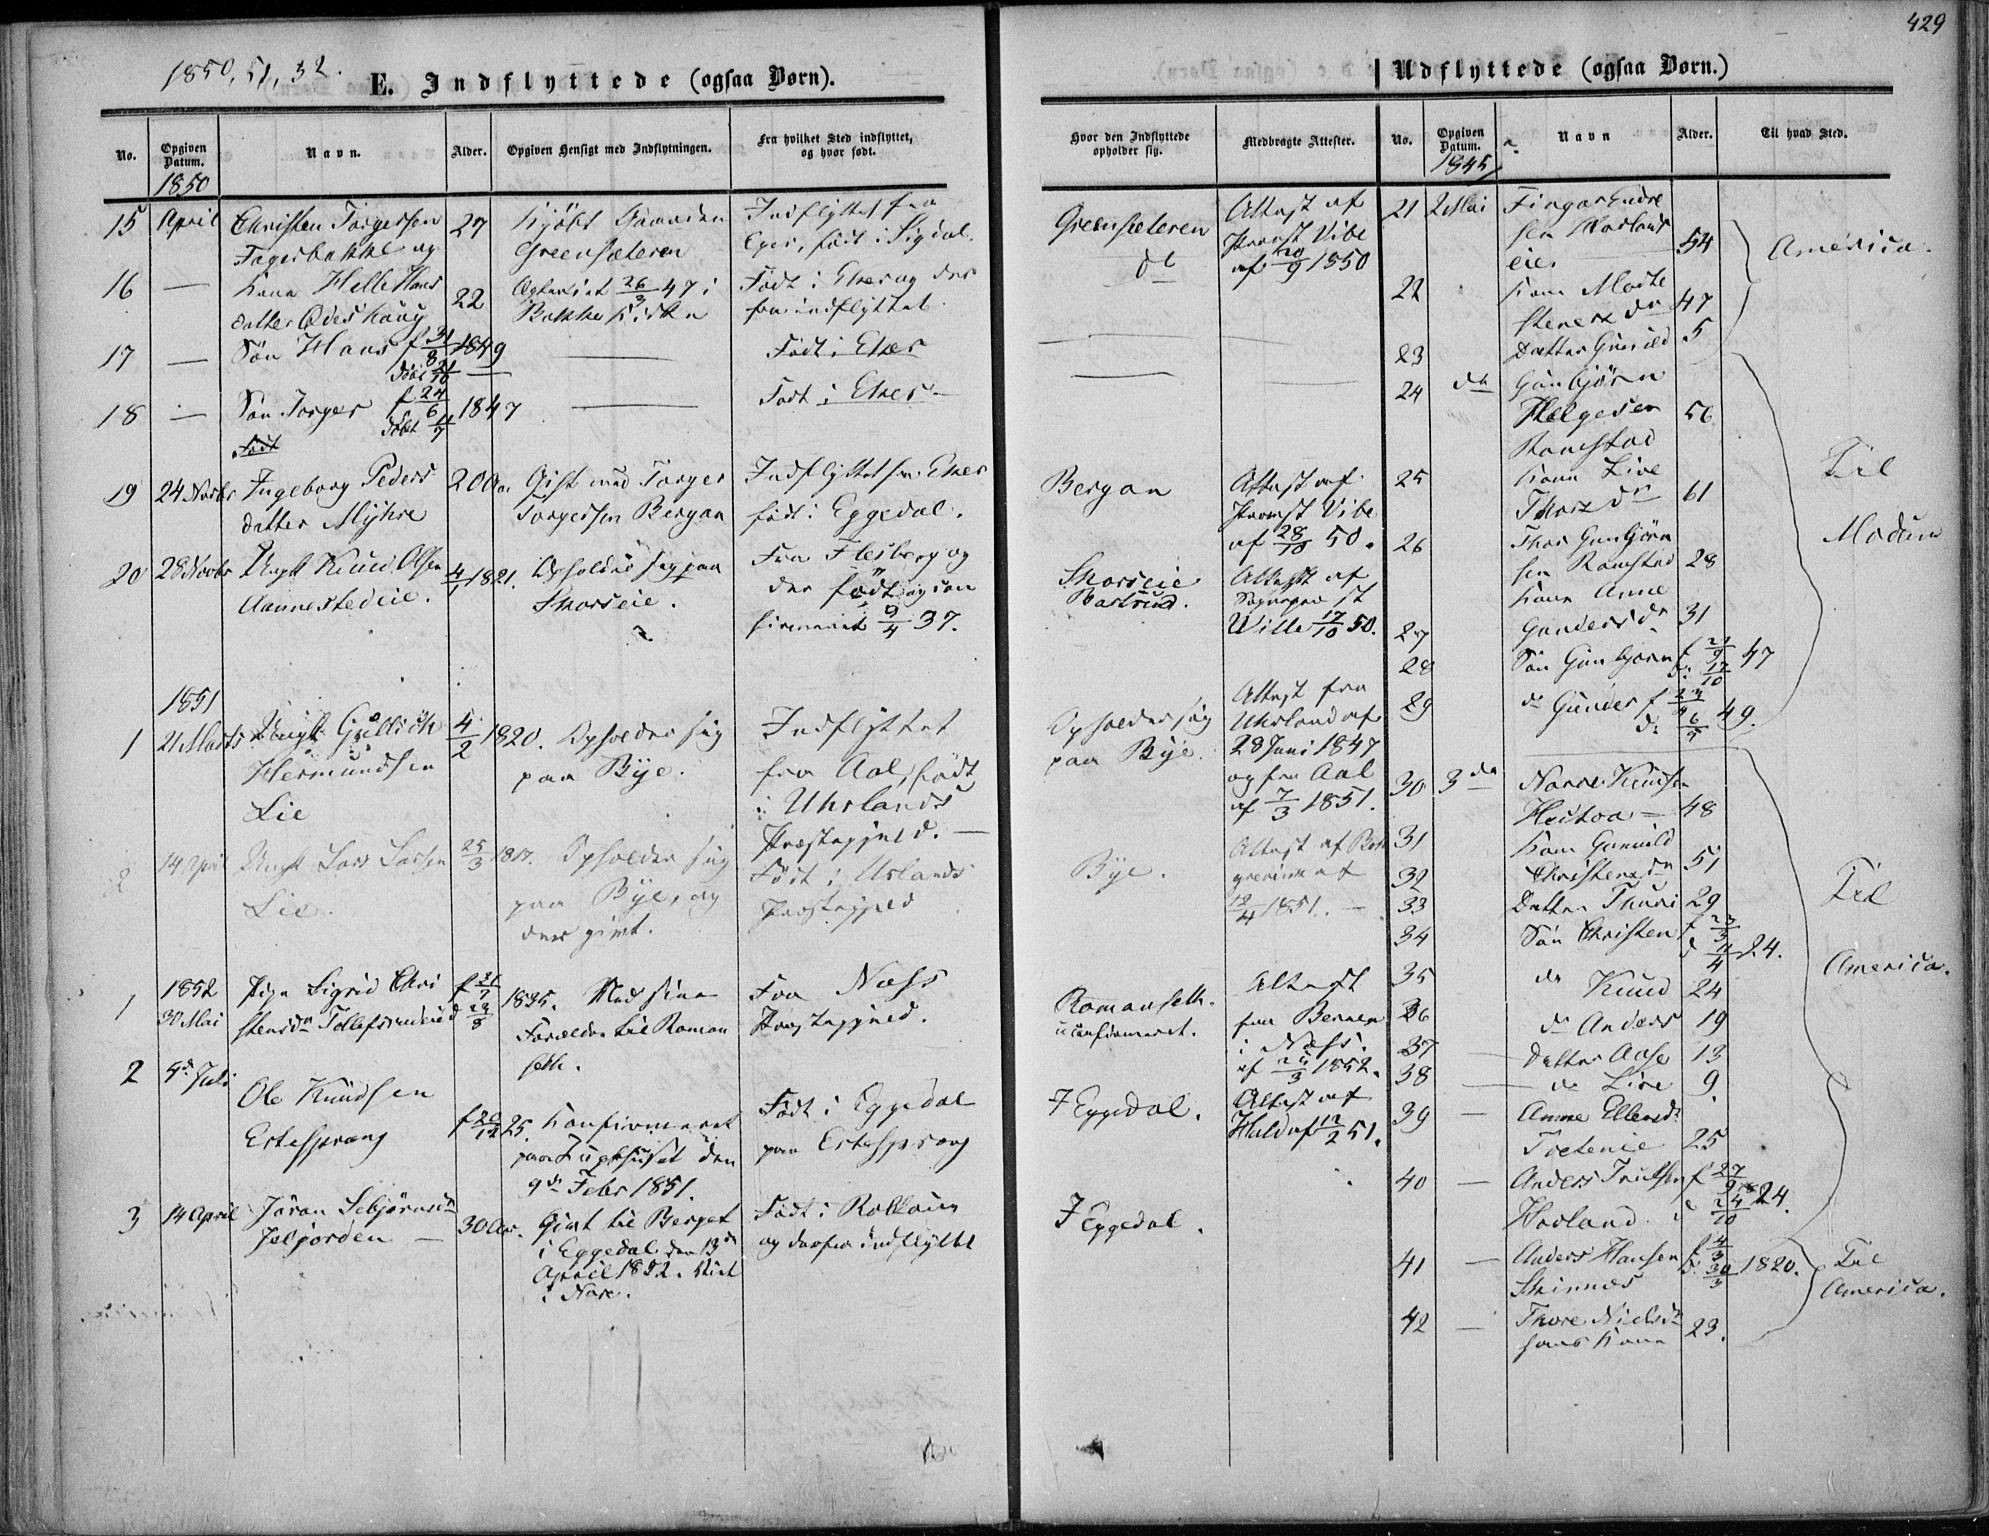 429
1850, 51, 52.
E. Indflyttede (ogsaa Børn).
Udflyttede (ogsaa Børn.)
No.
Opgiven Datum.
Navn.
Alder.
Opgiven Hensigt med Indflytningen.
Fra hvilket Sted indflyttet, og hvor født.
Hvor den Indflyttede opholder sig.
Medbragte Attester.
No.
Opgiven Datum.
Navn
Alder.
Til hvad Sted.
1850
15 April Christen Torgersen 27 Kjøbt Gaarden Indflyttet fra
Fagerbakke og Greensæteren Eger, født i Sigdal.
Greensæteren Attest af
do Provst Vibe
af 20/9 1850
16 — Kone Helle Hans 22 26/3 47 i Født i Eker og der
datter Bakke Kirke fra indflyttet.
17 — Søn Hans f 31/8 1849 — Født i Eker
døbt 21/10
18 — Søn Torger f 24/6 1847 — Født i Eker
døbt 11/7
Født
19 24 Novbr Ingeborg Peders 20 Aar Gift med Torger Indflyttet fra Eker
datter Myhre Torgersen Bergan født i Eggedal.
Bergan Attest af
Provst Vibe
af 28/10 50.
20 28 Novbr Ungk Knud Olsen 4/1 1821. Opholder sig paa Fra Flesberg og
Aannestedeie. Skarseie. der født og con
firmeret 9/4 37.
Skarseie Attest af
Bastrud. Sognepræst
Wille 17/10 50.
1851
1 21 Marts Ungk Gullick 4/2 1820. Opholder sig Indflyttet
Hermundsen paa Bye. fra Aal, født
Lie i Uhrlands
Præstegjeld. —
Opholder sig Attest fra
paa Bye. Uhrland af
28 Juni 1847
og fra Aal
af 7/3 1851.
2 14 April Ungk Lars Larsen 25/3 1817. Opholder sig Født i Urlands
Lie. paa Bye, og Præstegjeld
der givt.
Bye. Attest af
12/4 1851. —
1852
1 30 Mai Pige Sigrid Chri 1835. Med sine Fra Næss
stensdr Tollefsrudeie Forældre til Roman Præstegjeld.
seth.
Romanseth. Attest
uconfirmeret. fra Bernen
i Næss.
1852.
2 5te Juli Ole Knudsen 25. Konfirmeret Født i Eggedal
Ertesprang paa Tugthuset den paa Ertesprang
9de Febr 1851.
I Eggedal. Attest af
Huld af 12/2 51.
3 14 April Jøran Sebjørnsdr 30 Aar. Givt til Berget Født i Rollaug
— i Eggedal den 13de og derfra indflyttet
April 1852. Viet
i Nore.
I Eggedal.
1845
21 2 Mai Fingar Endre
sen Havland
eie. 54
America.
22 Kone Marte
Stenersdr 47
23 Datter Gunild 5
24 do Gunbjørn
Helgesen 56
Ramstad
Til
Modum
25 Kone Live
Thorsdr 61
26 Thor Gunbjørn
sen Ramstad 28
27 Kone Anne
Gundersdr 31
28 Søn Gunbjørn f 21/9 d. 17/10 47
29 do Gunder 49.
30 3 do Narve Knudsen
48
31 Kone Gunuld
Christensdr 51
32 Datter Thuri 29
33 Søn Christen 24.
34 do Knud 24
35 do Anders 19
36 Datter Aase 13
37 — do Live 9.
38
Til
America.
39 — Anne Ellensdr
25
40 — Anders Truelsen f 27/9 1824.
Havland d 24/10
41 — Anders Hansen f 4/3 1820.
Skinnes d. 30/3
Til
America.
42 — Thore Nielsdr 23.
hans Kone